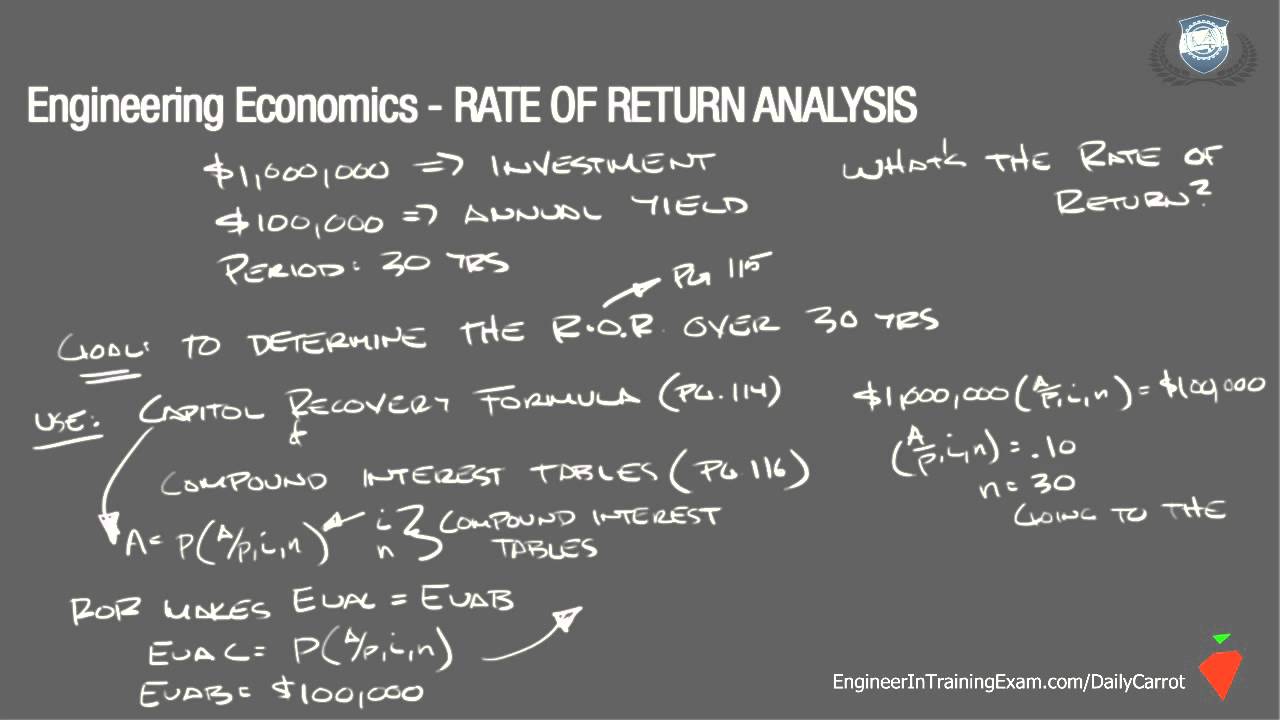 Engineering Economics - RATE OF RETURN ANALYSIS
$1,000,000 => INVESTMENT
$100,000 => ANNUAL YIELD
PERIOD: 30 YRS
WHAT'S THE RATE OF
RETURN?
PG 115
GOAL: TO DETERMINE THE R.O.R. OVER 30 YRS
USE: CAPITOL RECOVERY FORMULA (PG. 114)
&
COMPOUND INTEREST TABLES (PG. 116)
A = P(A/P, i, n) i n } COMPOUND INTEREST
TABLES
ROR MAKES EUAC = EUAB
EUAC = P(A/P, i, n)
EUAB = $100,000
$1,000,000 (A/P, i, n) = $100,000
(A/P, i, n) = .10
n = 30
GOING TO THE
EngineerInTrainingExam.com/DailyCarrot